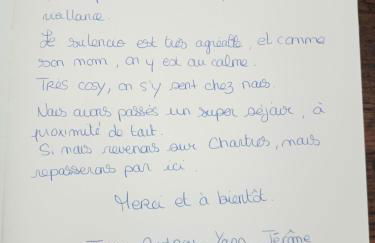 vaillance.
Le silence est très agréable, et comme
son nom, on y est au calme.
Très cosy, on s'y sent chez nous.
Nous avons passés un super séjour, à
proximité de tout.
Si nous revenons sur Chartres, nous
repasserons par ici.
Merci et à bientôt.
Yann Jérôme